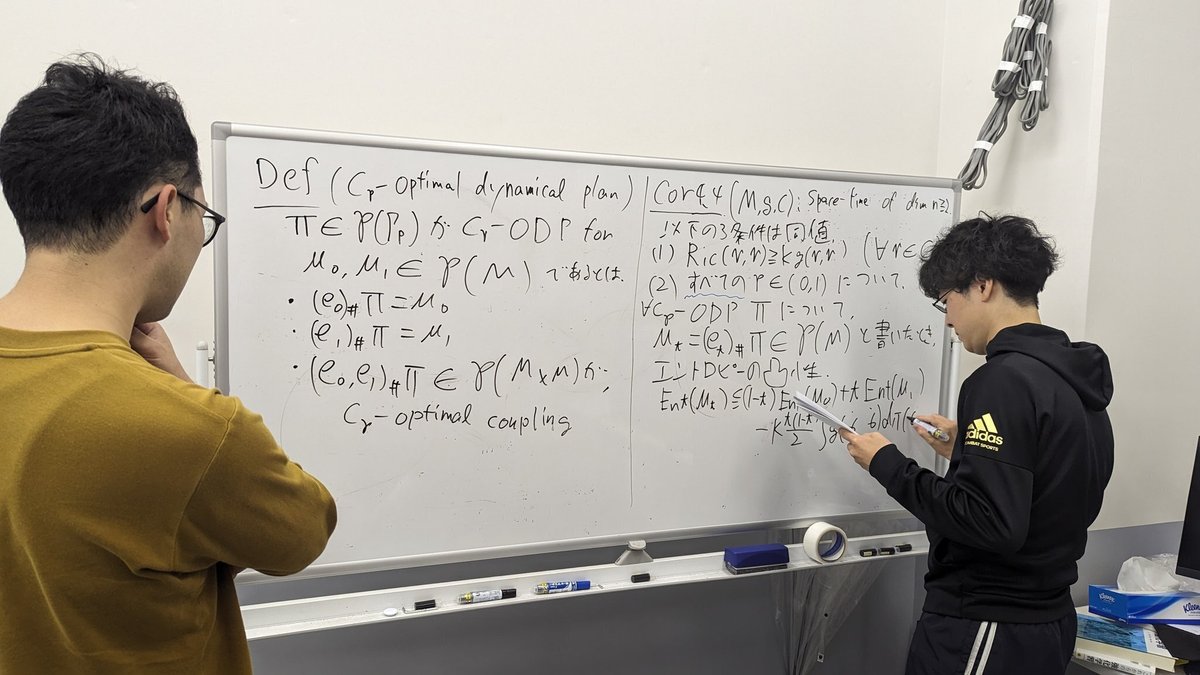 Def (Cp-optimal dynamical plan)
Π ∈ P(Γp) が Cp-ODP for
μ0, μ1 ∈ P(M) であるとは.
・(e0)# Π = μ0
・(e1)# Π = μ1
・(e0, e1)# Π ∈ P(M×M) が,
Cp-optimal coupling
Cor 4.4 (M, g, C): Space-time of dim n≧2.
以下の3条件は同値.
(1) Ric(v,v) ≧ k g(v,v) (∀v ∈
(2) すべての P ∈ (0,1) について.
∀Cp-ODP Π について,
μt = (et)# Π ∈ P(M) と書いたとき,
エントロピーの凸性.
Ent(μt) ≦ (1-t) Ent(μ0) + t Ent(μ1)
-K t(1-t)/2 ∫g( dΠ(
adidas
COMBAT SPORTS
Kleenex